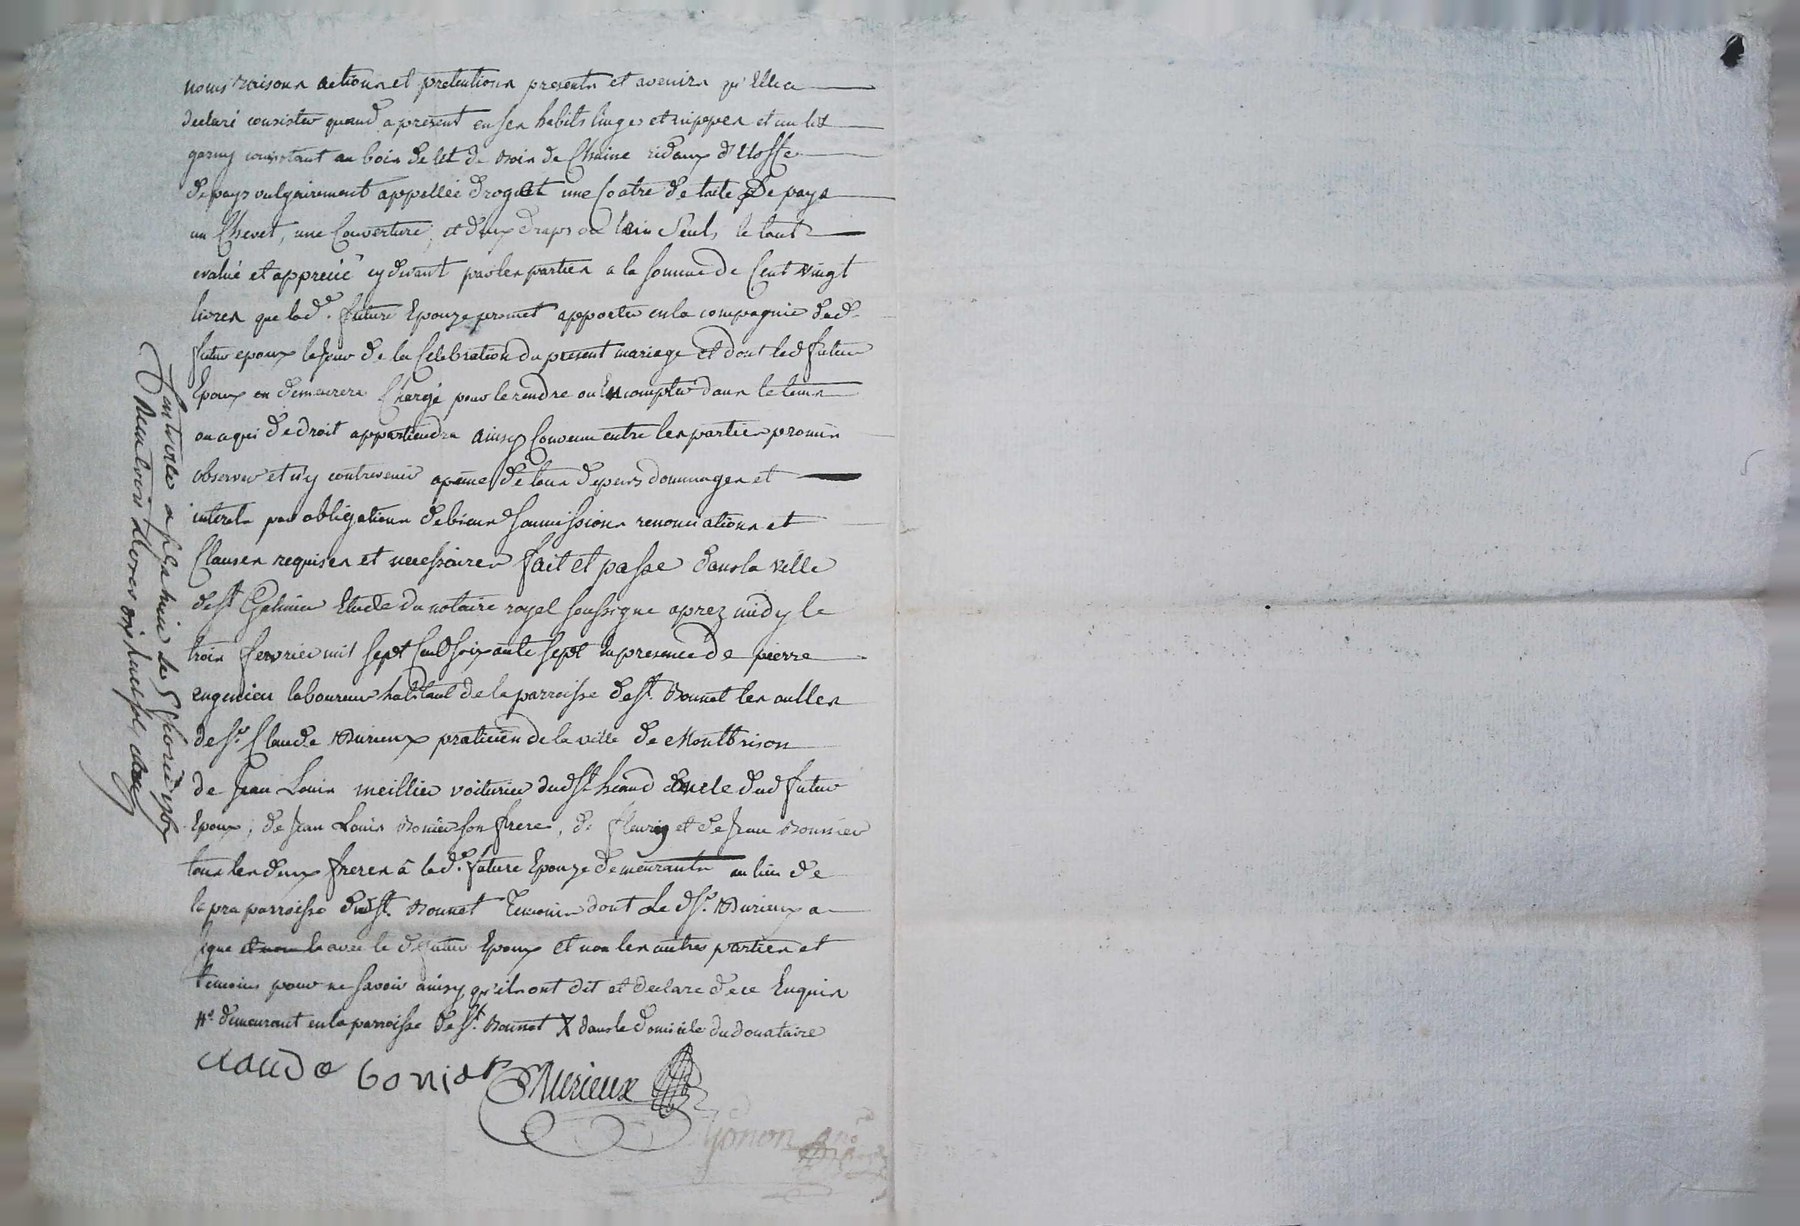 noms raisons actions et pretentions presents et avenirs qu'Elle a
declaré consister quand a present en ses habits linges et nippes et un lit
garny consistant au bois de lit de bois de Chaine ridaux d'Etoffe
de pays vulgairement appellée droguet une Coatre de toile de pays
un Chevet, une Couverture, et deux draps ou linseuls le tout
evalué et apprecié cy devant par les parties a la somme de Cent vingt
livres que lad.e future Epouze promet apporter en la compagnie dud.
futur epoux le Jour de la Celebration du present mariage et dont led futur
Epoux en demeurera Chargé pour le rendre ou En compter dans le tems
ou a qui de droit appartiendra ainsy Convenu entre les parties promis
observer et n'y contrevenir apeine de tous depens dommages et
interets par obligations de biens soumissions renonciations et
Clauses requises et necessaires fait et passé dans la ville
de st Galmier Etude du notaire royal soussigné aprez midy le
trois fevrier mil sept Cent soixante sept en presence de pierre
laboureur habitant de la parroisse de st. Bonnet les oulles
de sr. Claude Murieux praticien de la ville de Montbrison
de Jean Louis meillier voiturier dud st heand oncle dud futur
Epoux, de Jean Louis Bonier son frere, de fleury et de Jean Bonnier
tous les deux freres à lad.e future Epouze demeurants au lieu de
la pra parroisse dud st. Bonnet Temoins dont Le d sr. Murieux a
signé avec le d futur Epoux et non les autres parties et
temoins pour ne savoir ainsy qu'ils ont dit et declaré de ce Enquis
demeurant en la parroisse de st. Bonnet X dans le domicile du donataire
claude bonier Murieux
Gonon